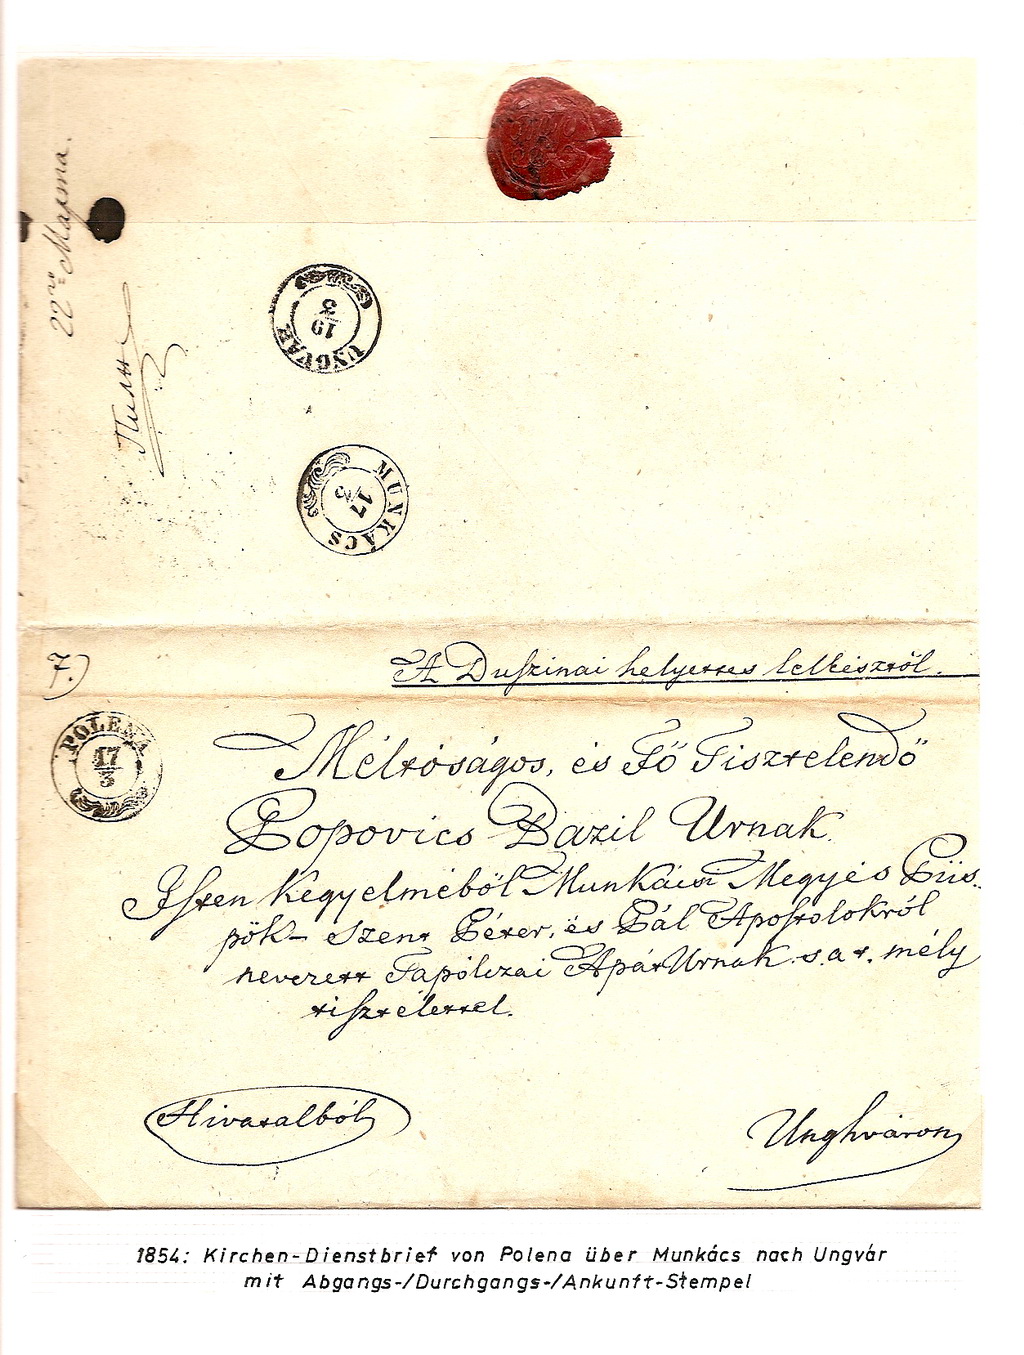 22го Марта.
UNGVÁR
19
3
MUNKÁCS
17
3
7.)
A Duszinai helyettes lelkésztől.
POLENA
17
3
Méltóságos, és Fő Tisztelendő
Popovics Bazil Urnak.
Isten Kegyelméből Munkácsi Megyés Püs-
pök – Szent Péter, és Pál Apostolokról
nevezett Tapólczai Apát Urnak s.a.t. mély
tisztelettel.
Hivatalból
Unghváron
1854: Kirchen-Dienstbrief von Polena über Munkács nach Ungvár
mit Abgangs-/Durchgangs-/Ankunft-Stempel